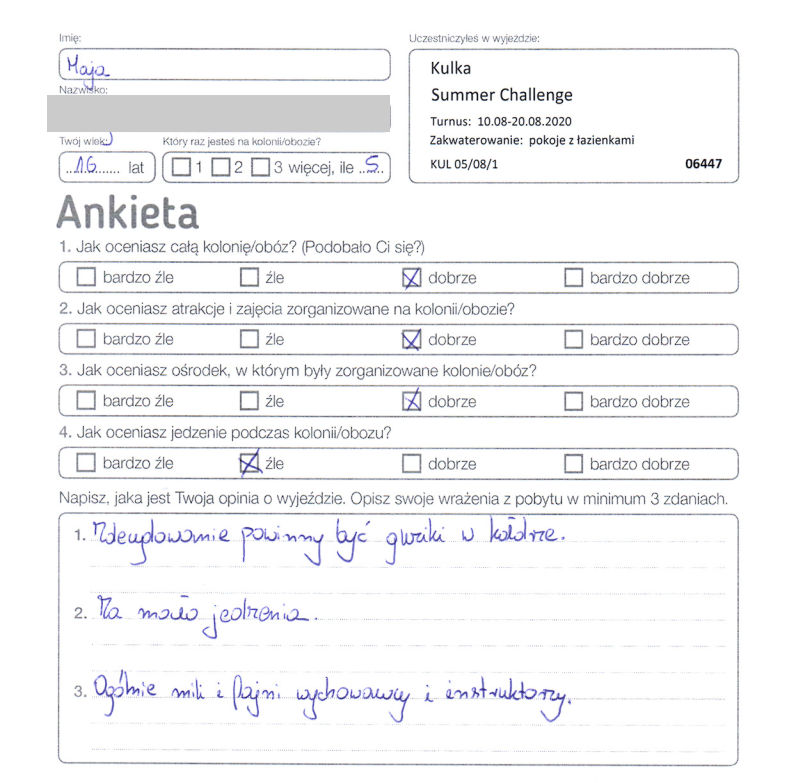 Imię:
Uczestniczyłeś w wyjeździe:
Maja
Kulka
Summer Challenge
Nazwisko:
Turnus: 10.08-20.08.2020
Twój wiek:
Który raz jesteś na kolonii/obozie?
Zakwaterowanie: pokoje z łazienkami
16 lat
1 2 3 więcej, ile 5
KUL 05/08/1
06447
Ankieta
1. Jak oceniasz całą kolonię/obóz? (Podobało Ci się?)
bardzo źle źle dobrze bardzo dobrze
2. Jak oceniasz atrakcje i zajęcia zorganizowane na kolonii/obozie?
bardzo źle źle dobrze bardzo dobrze
3. Jak oceniasz ośrodek, w którym były zorganizowane kolonie/obóz?
bardzo źle źle dobrze bardzo dobrze
4. Jak oceniasz jedzenie podczas kolonii/obozu?
bardzo źle źle dobrze bardzo dobrze
Napisz, jaka jest Twoja opinia o wyjeździe. Opisz swoje wrażenia z pobytu w minimum 3 zdaniach.
1. Zdecydowanie powinny być guziki w kołdrze.
2. Za mało jedzenia.
3. Ogólnie mili i fajni wychowawcy i instruktorzy.